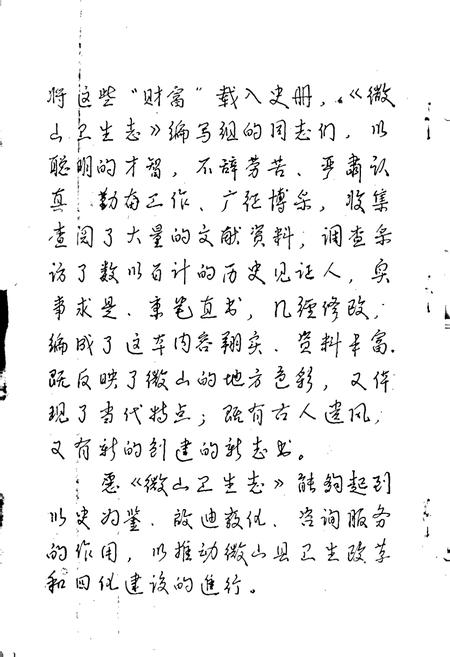 将这些“财富”载入史册，《微
山卫生志》编写组的同志们，以
聪明的才智，不辞劳苦、严肃认
真、勤奋工作、广征博采，收集
查阅了大量的文献资料，调查采
访了数以百计的历史见证人，实
事求是、秉笔直书，几经修改，
编成了这本内容翔实、资料丰富，
既反映了微山的地方色彩，又体
现了当代特点；既有古人遗风，
又有新的创建的新志书。
愿《微山卫生志》能够起到
以史为鉴、啟迪教化、咨询服务
的作用，以推动微山县卫生改革
和四化建设的進行。